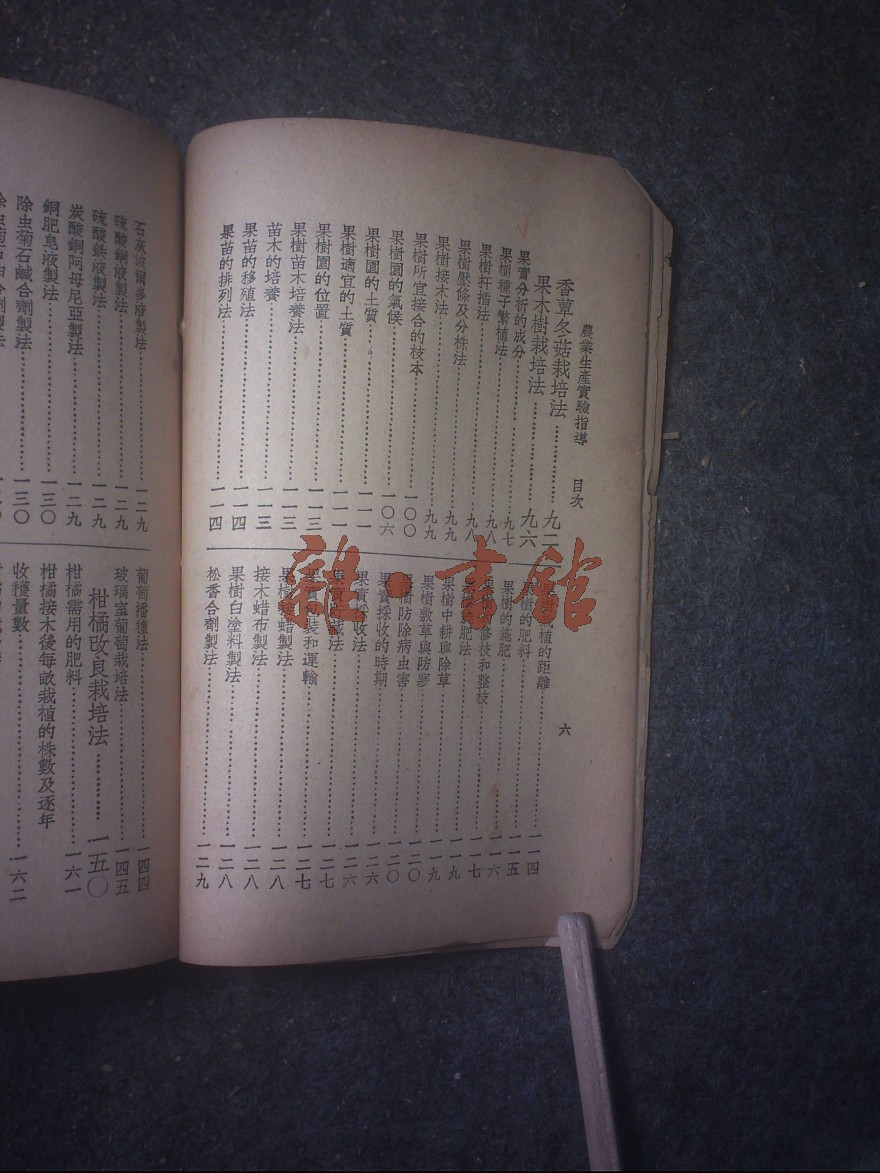 農業生產實驗指導 目次 六
香蕈冬菇栽培法 九二
果木樹栽培法 九六
果實分析的成分 九七
果樹種子繁植法 九八
果樹扦插法 九八
果樹壓條及分株法 九九
果樹接木法 九九
果樹所宜接合的枝本 一〇〇
果樹園的氣候 一〇六
果樹園的土質 一一一
果樹適宜的土質 一一一
果樹園的位置 一一三
果樹苗木培養法 一一三
苗木的培養 一一三
果苗的移殖法 一一四
果苗的排列法 一一四
植的距離 一一四
樹的肥料 一一五
果樹的施肥 一一六
修枝和整枝 一一七
肥法 一一九
果樹中耕與除草 一一九
果樹敷草與防寒 一二〇
樹防除病虫害 一二〇
果實採收的時期 一二六
果實採收法 一二六
果實 藏法 一二七
果實包裝和運輸 一二七
果樹 蜡製法 一二八
接木蜡布製法 一二八
果樹白塗料製法 一二八
松香合劑製法 一二九
石灰波爾多液製法 一二九
硫酸銅液製法 一二九
硫酸鉄液製法 一二九
炭酸銅阿母尼亞製法 一二九
銅肥皂液製法 一三〇
除虫菊石鹹合劑製法 一三〇
葡萄播種法 一四四
玻璃室葡萄栽培法 一四五
柑橘改良栽培法 一五〇
柑橘需用的肥料 一六一
柑橘接木後每畝栽植的株數及逐年
收穫量數 一六二
雜·書館